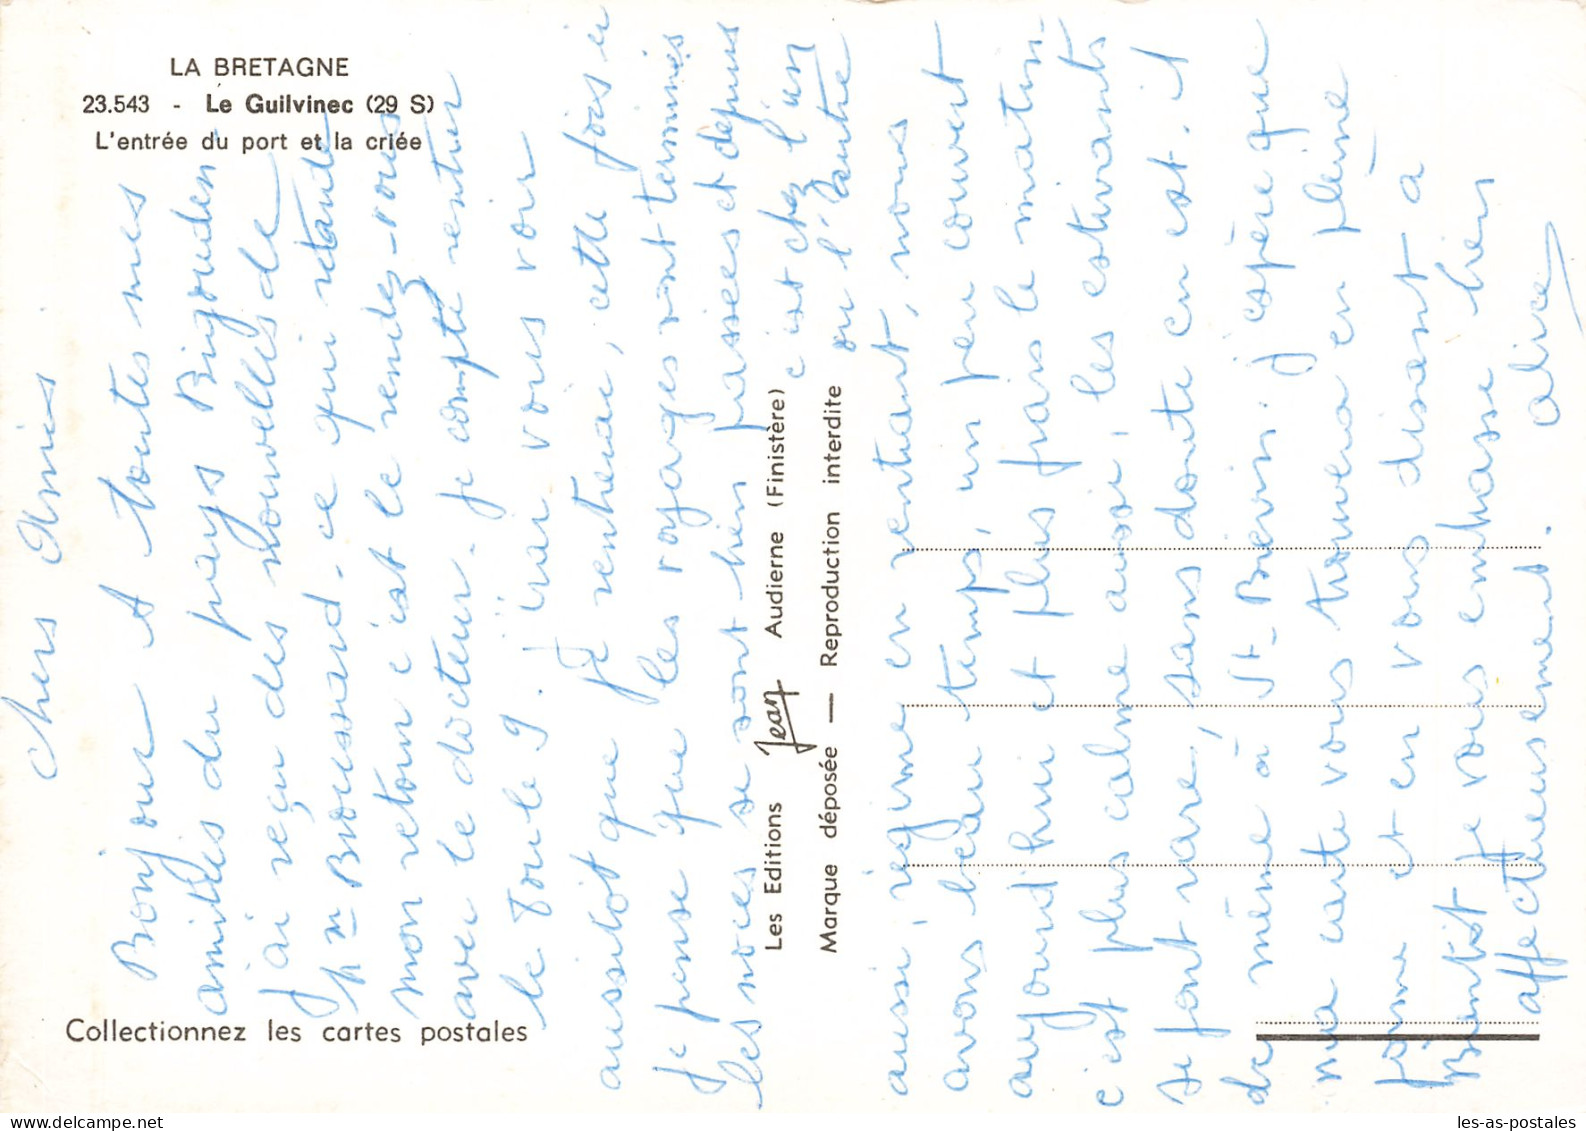 LA BRETAGNE
23.543 - Le Guilvinec (29 S)
L'entrée du port et la criée
Chers Amis
Bonjour et toutes mes
amitiés du pays Bigouden
J'ai reçu des nouvelles de
Mme Broussard - ce qui retarde
mon retour c'est le rendez-vous
avec le docteur. Je compte rentrer
le 8 ou le 9. J'irai vous voir
aussitôt que je rentrerai, cette fois ci
Je pense que les voyages sont terminés
les noces se sont bien passées et depuis
c'est chez l'un
ou l'autre
aussi, régime en rentrant, nous
avons beau temps, un peu couvert
aujourd'hui et plus frais le matin -
c'est plus calme aussi, les estivants
se font rare, sans doute en est-il
de même à St-Brevin. J'espère que
ma carte vous trouvera en pleine
forme et en vous disant à
Bientôt je vous embrasse bien
affectueusement. Alice
Les Editions Jean Audierne (Finistère)
Marque déposée — Reproduction interdite
Collectionnez les cartes postales
les-as-postales.com